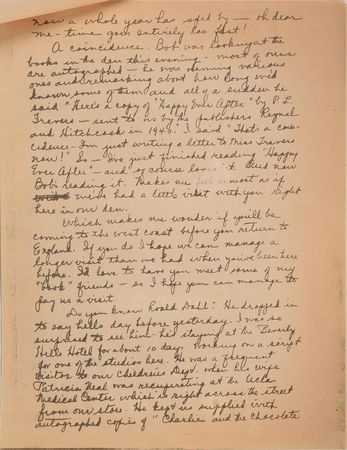 now a whole year has sped by — oh dear
me - time goes entirely too fast!
A coincidence. Bob was looking at the
books in the den this evening - most of ours
are autographed - he was naming various
ones and remarking about how long we'd
known some of them and all of a sudden he
said "Here's a copy of "Happy Ever After" by P. L.
Travers - sent to us by the publishers Reynal
and Hitchcock in 1940." I said "That's a coin-
cidence - I'm just writing a letter to Miss Travers
now!" So - I've just finished reading "Happy
Ever After" - and of course love it. And now
Bob's reading it. Makes me feel almost as if
we've had a little visit with you right
here in our den.
Which makes me wonder if you'll be
coming to the west coast before you return to
England. If you do I hope we can manage a
longer visit than we had when you've been here
before. I'd love to have you meet some of my
"book" friends - so I hope you can manage to
pay us a visit.
Do you know Roald Dahl? He dropped in
to say hello day before yesterday. I was so
surprised to see him - he's staying at the Beverly
Hills Hotel for about 10 days working on a script
for one of the studios here. He was a frequent
visitor to our Children's Dept. when his wife
Patricia Neal was recuperating at the Ucla
Medical Center which is right across the street
from our store. He kept us supplied with
autographed copies of "Charlie and the Chocolate